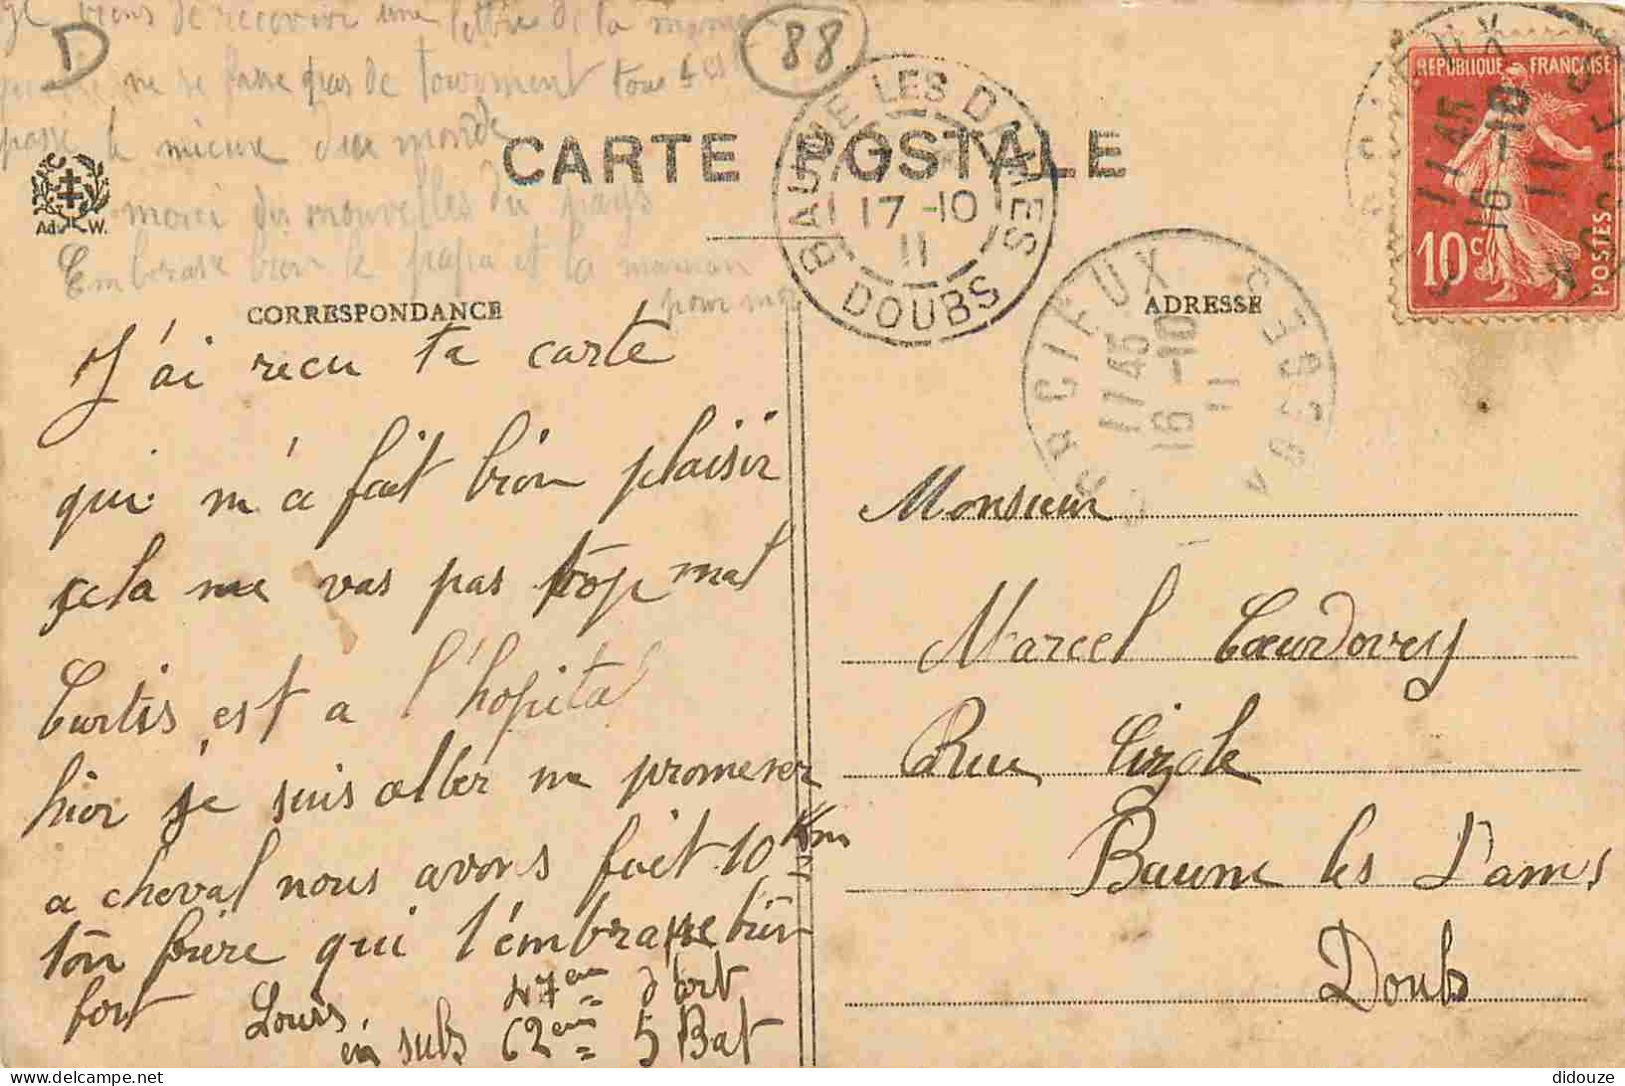 Je viens de recevoir une lettre de la maman
ne se fasse pas de tourment tout est
passé le mieux du monde
merci des nouvelles du pays
Embrasse bien le papa et la maman
pour moi
D
88
CARTE POSTALE
Ad. W.
CORRESPONDANCE
ADRESSE
BAUME LES DAMES
17 -10
11
DOUBS
CORCIEUX VOSGES
11 45
16 -10
11
RÉPUBLIQUE FRANÇAISE
10c
POSTES
11 45
16 -10
11
J'ai recu ta carte
qui m'a fait bien plaisir
cela me vas pas trop mal
Curtis est a l'hopital
hier je suis aller me promener
a cheval nous avons fait 10 Km
ton frère qui t'embrasse bien
fort Louis. 47em d'art
en subs 62em 5 Bat
Monsieur
Marcel Coeurdovey
Rue Cizole
Baume les Dames
Doubs
didouze